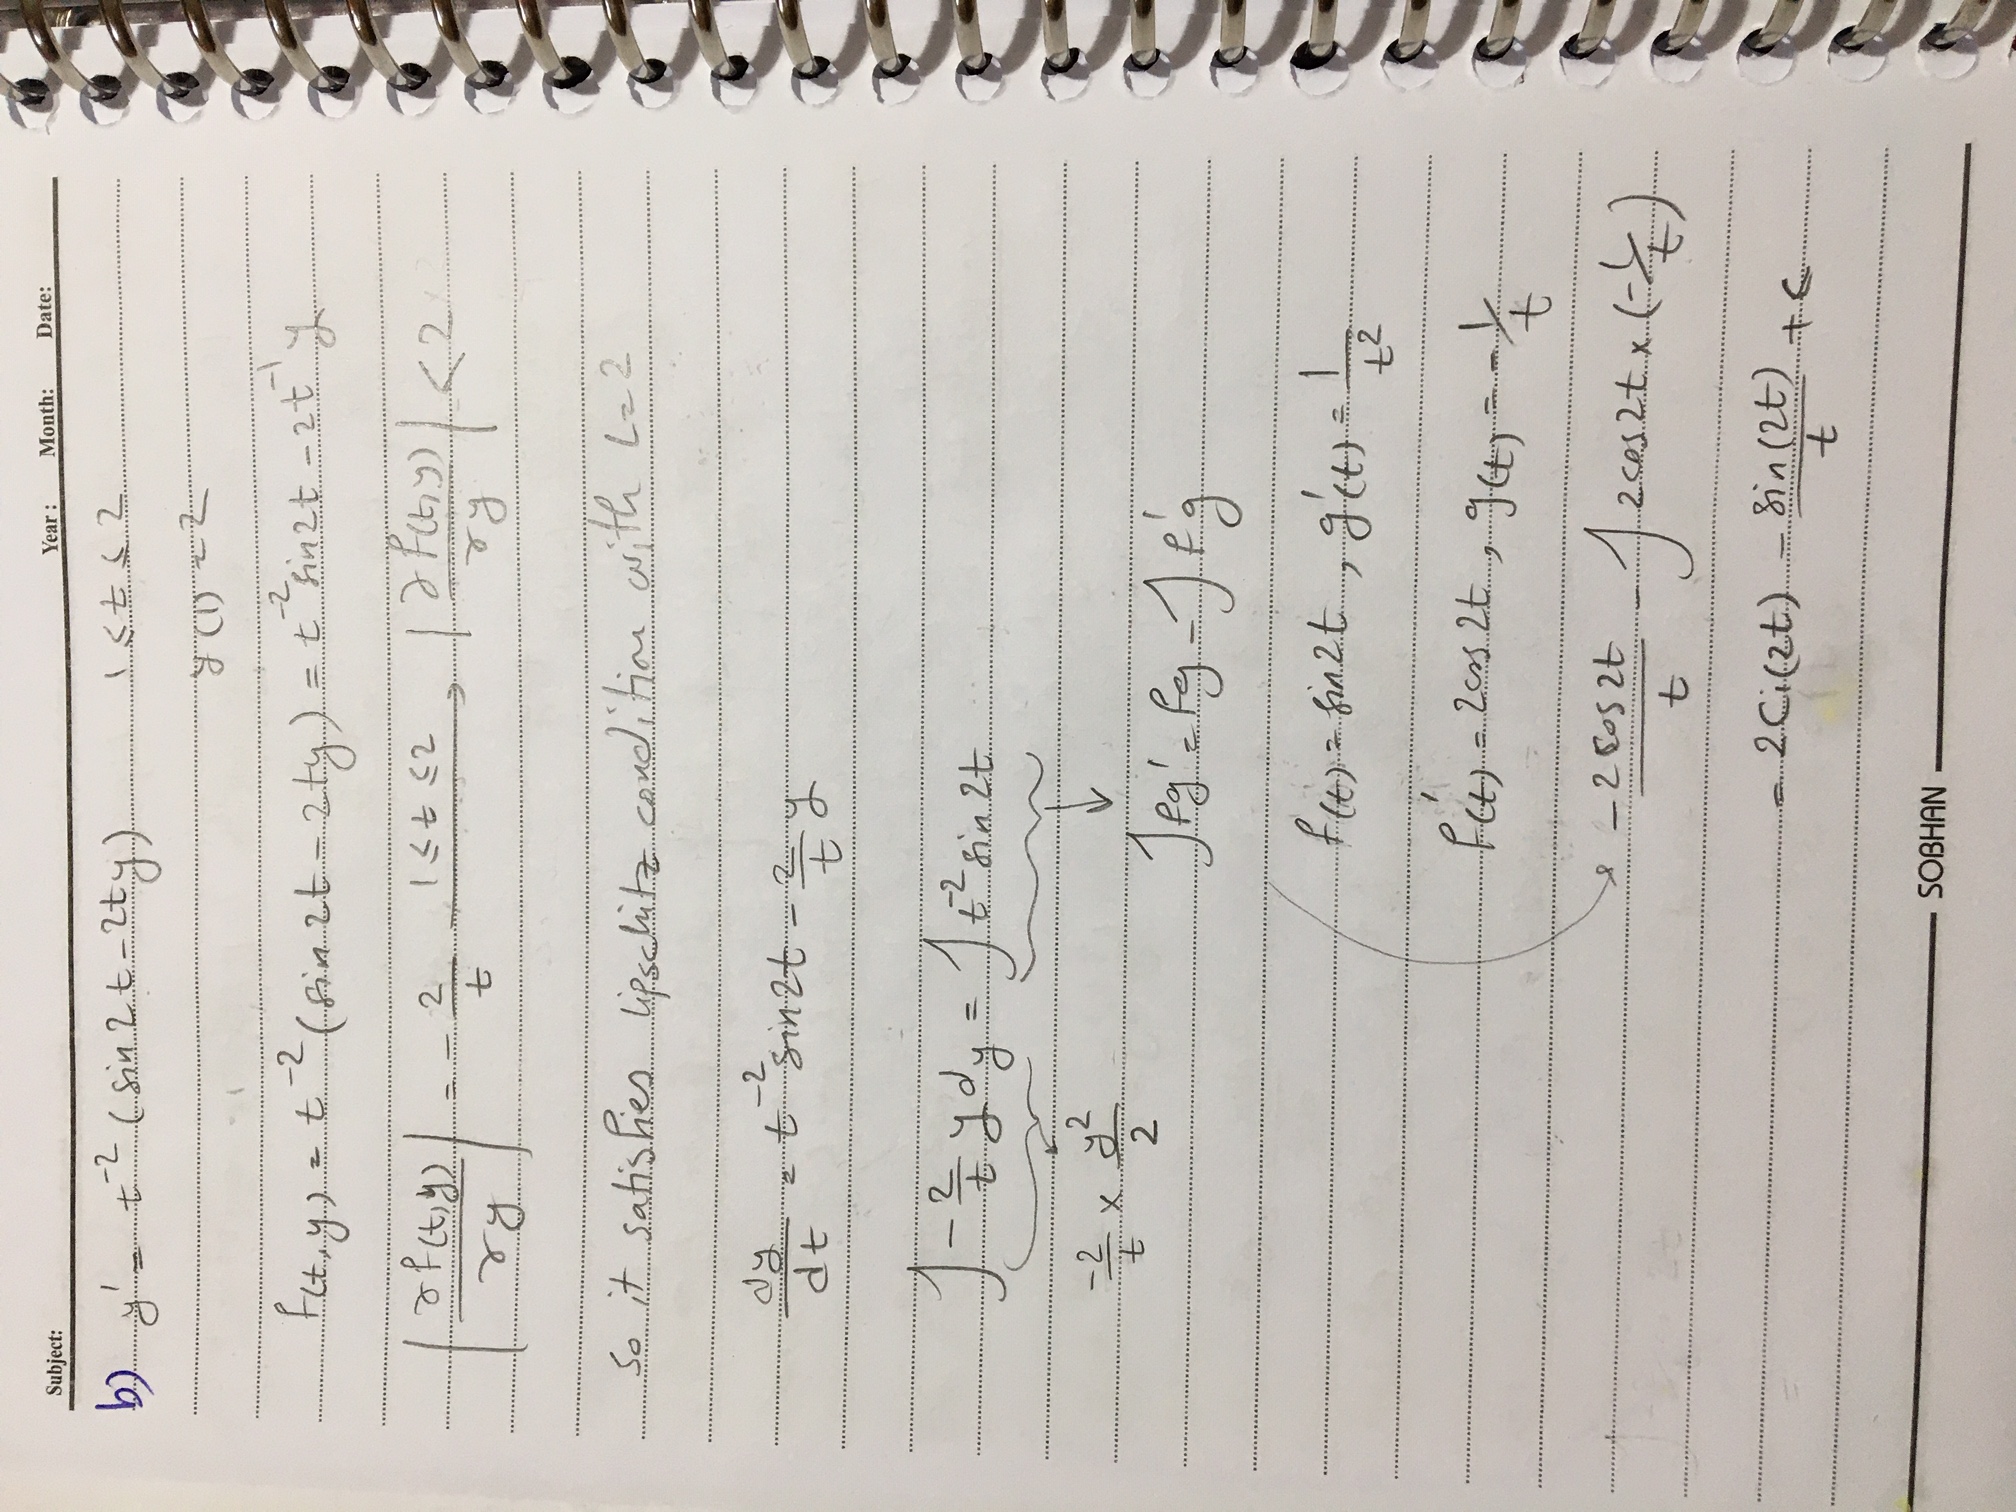 Subject: Year: Month: Date:
b) y' = t⁻² (sin2t - 2ty) 1 ≤ t ≤ 2
y(1) = 2
f(t,y) = t⁻² (sin2t - 2ty) = t⁻² sin2t - 2t⁻¹ y
|∂f(t,y)/∂y| = -2/t 1 ≤ t ≤ 2 → |∂f(t,y)/∂y| < 2
So it satisfies lipschitz condition with L=2
dy/dt = t⁻² sin2t - 2/t y
∫ -2/t y dy = ∫ t⁻² sin2t
-2/t × y²/2
∫fg' = fg - ∫f'g
f(t) = sin2t, g'(t) = 1/t²
f'(t) = 2cos2t, g(t) = -1/t
-2cos2t/t - ∫2cos2t × (-1/t)
= 2Ci(2t) - sin(2t)/t + c
SOBHAN